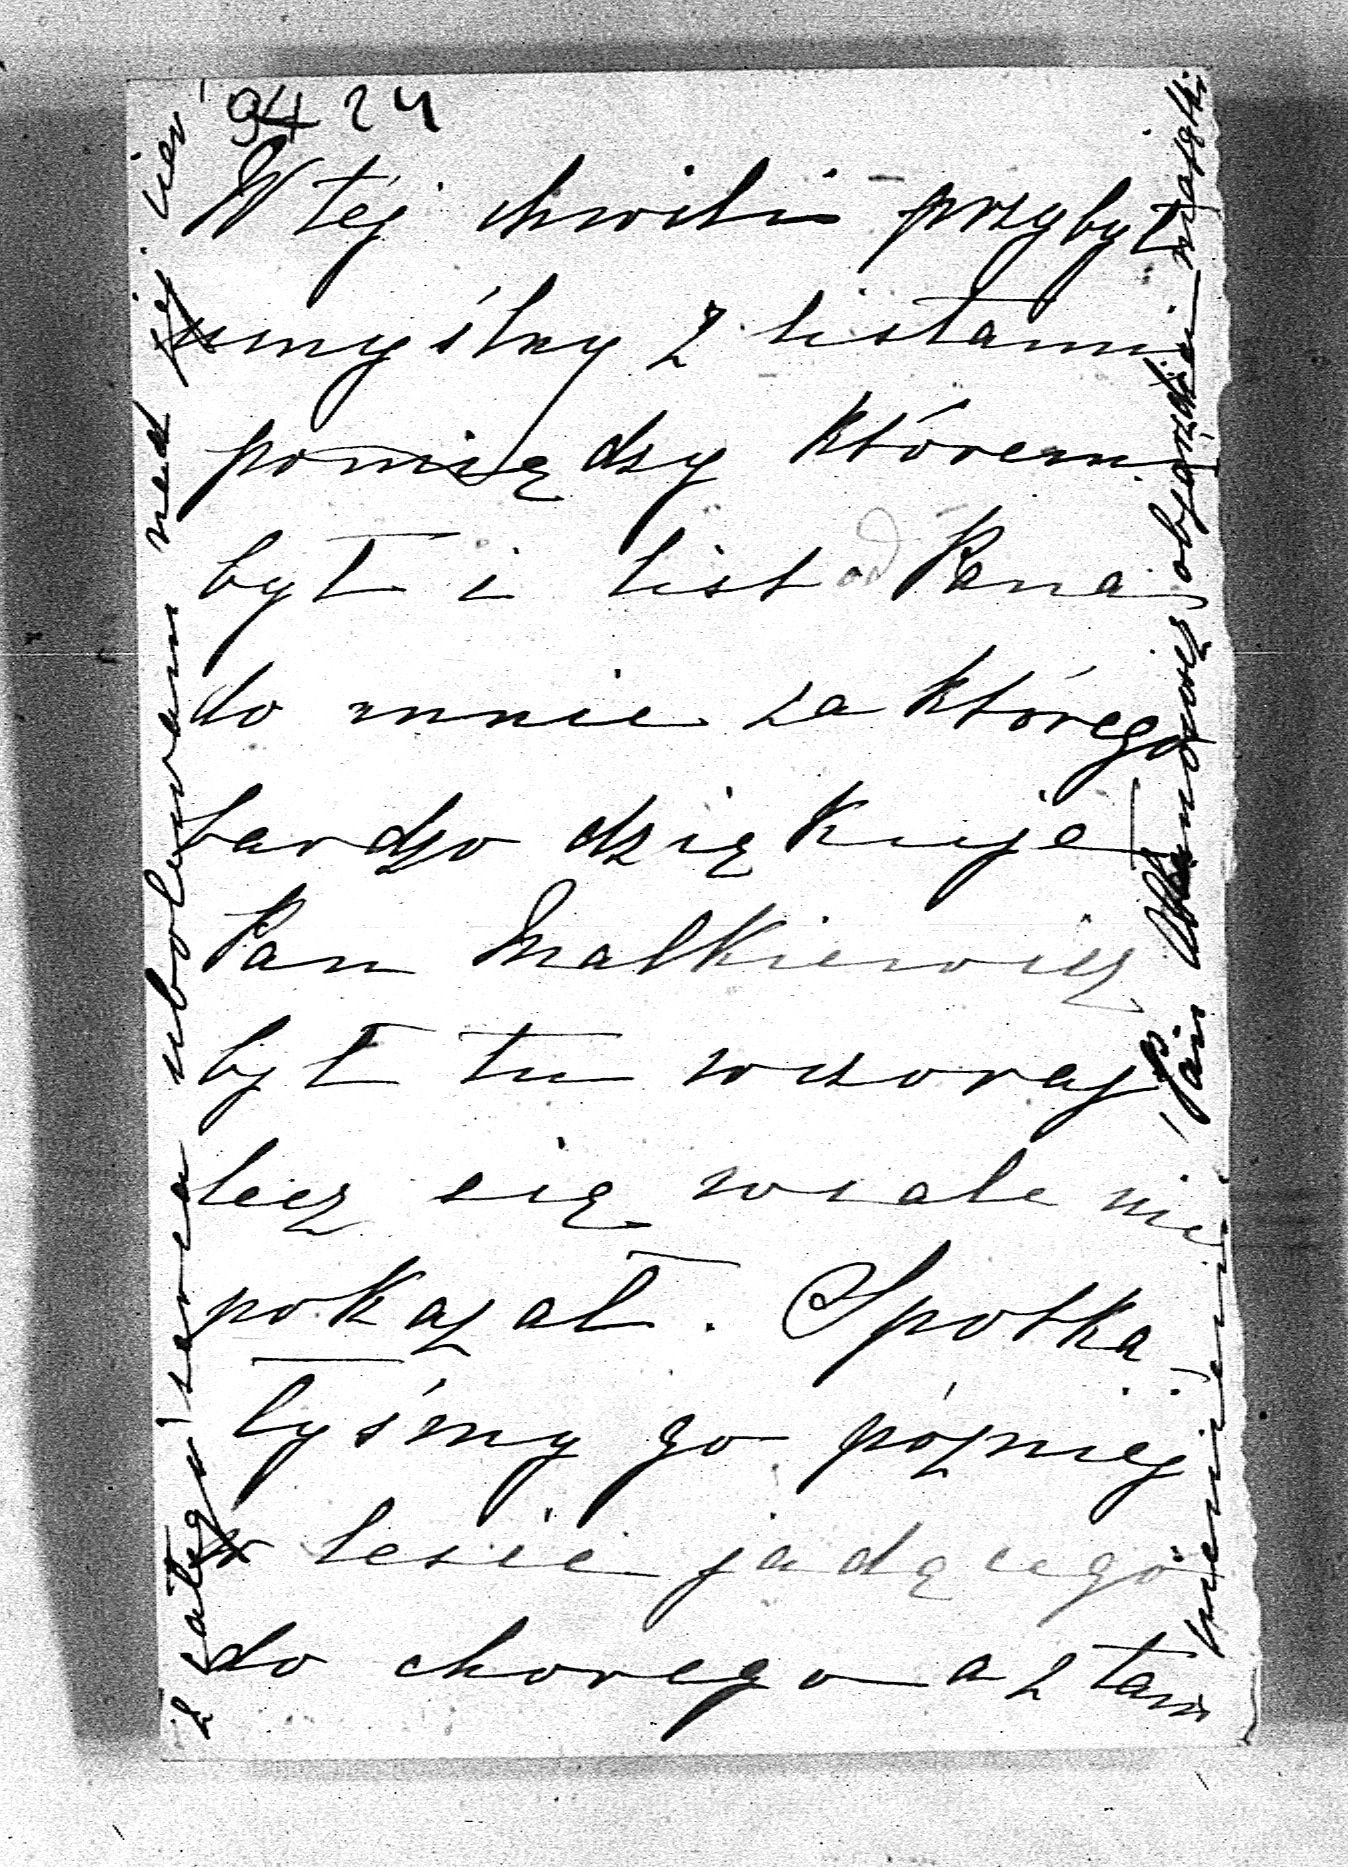 94 24
W téj chwili przybył
umyślny z listami
pomiędzy któremi
był i list od Pana
do mnie za którego
bardzo dziękuję
Pan Malkiewicz
był tu wczoraj
lecz się wcale nie
pokazał. Spotka
łyśmy go póżniej
w lesie jadącego
do chorego a z tam
z całego serca ubolewam nad jej cier
pieniem. Pan objeżdża majątki